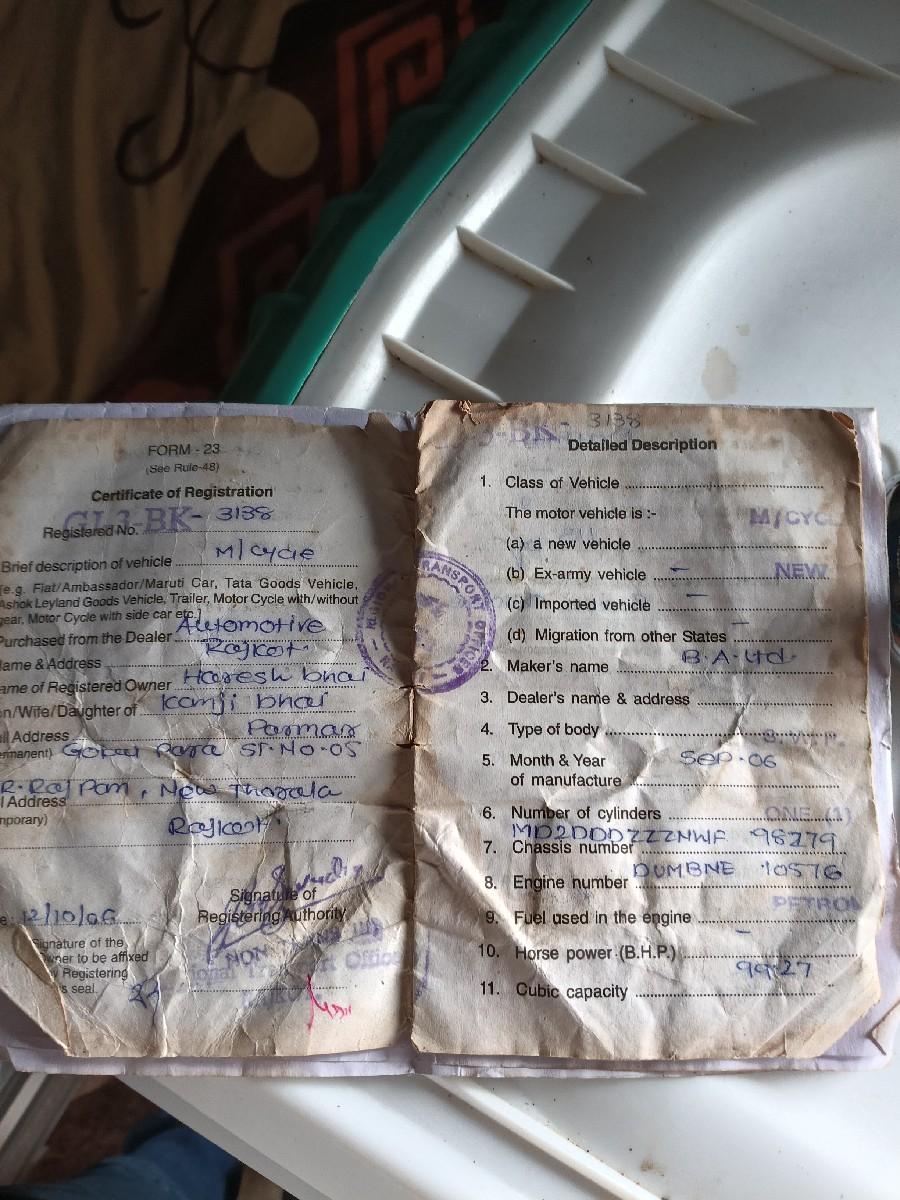 FORM - 23
(See Rule-48)
Certificate of Registration
Registered No. GJ-3-BK- 3138
Brief description of vehicle M/cycle
(e.g. Fiat/Ambassador/Maruti Car, Tata Goods Vehicle,
Ashok Leyland Goods Vehicle, Trailer, Motor Cycle with/without
gear, Motor Cycle with side car etc.)
Purchased from the Dealer Automotive
Rajkot.
Name & Address
ame of Registered Owner Haresh bhai
n/Wife/Daughter of Kanji bhai
ll Address Parmar
rmanent) Gokul Para ST.NO.05
New Thorala
l Address
nporary) Rajkot
Signature of
Registering Authority
e: 12/10/06
Signature of the
wner to be affixed
y Registering
s seal.
TRANSPORT OFFICER
3-BK- 3138
Detailed Description
1. Class of Vehicle
The motor vehicle is :- M/CYC
(a) a new vehicle
(b) Ex-army vehicle – NEW
(c) Imported vehicle –
(d) Migration from other States –
2. Maker's name B.A.Ltd.
3. Dealer's name & address
4. Type of body
5. Month & Year Sep.06
of manufacture
6. Number of cylinders ONE (1)
MD2DDDZZZNWF 98279
7. Chassis number
8. Engine number DUMBNE 10576
9. Fuel used in the engine PETROL
10. Horse power (B.H.P.) –
11. Cubic capacity 99.27